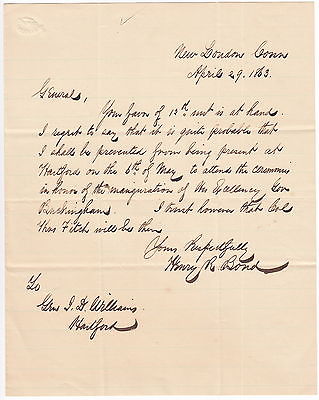 New London Conn
April 29. 1863.
General,
Your favor of 13th inst is at hand.
I regret to say that it is quite probable that
I shall be prevented from being present at
Hartford on the 6th of May, to attend the ceremonies
in honor of the inauguration of His Excellency Gov
Buckingham. I trust however that Col
Thos Fitch will be there
Yours Respectfully
Henry R. Bond
To
Gen J. D. Williams
Hartford